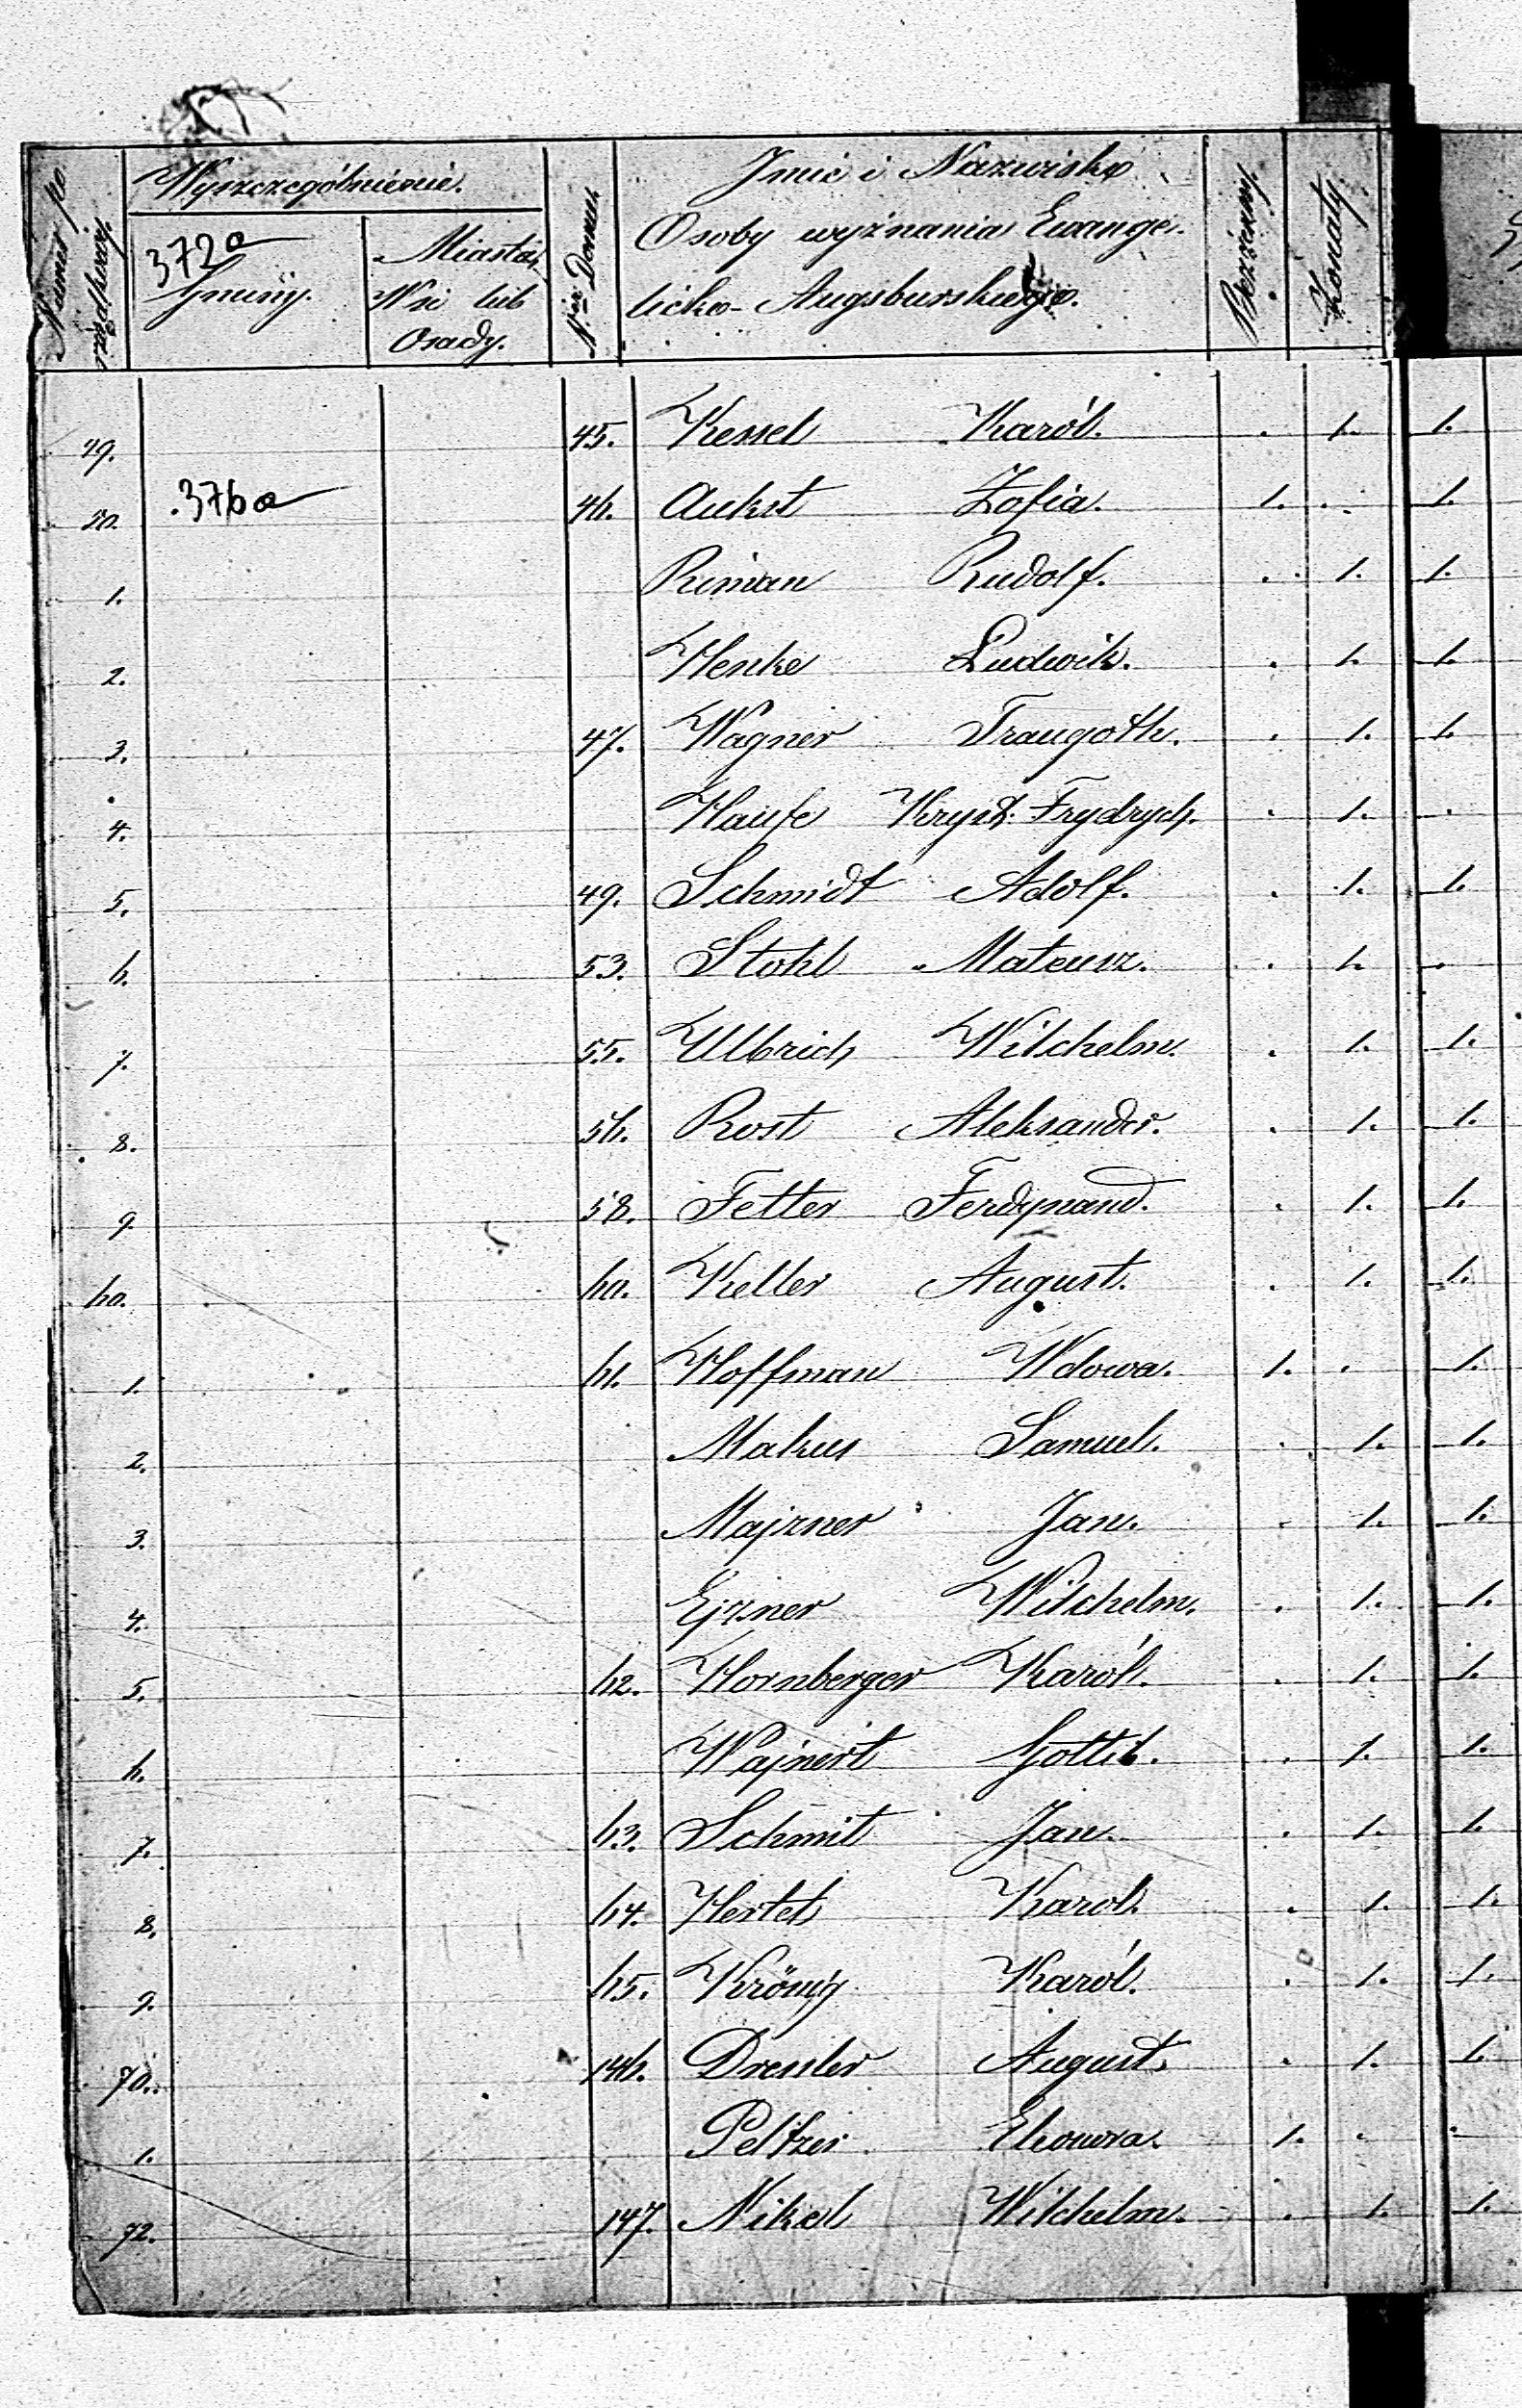 Numer po rządkowy
Wyszczególnienie.
372a
Gminy.
Miasta,
Wsi lub
Osady.
N.er Domu
Imie i Nazwisko
Osoby wyznania Ewange-
licko-Augsburskiego.
Bezżenny.
Żonaty.
49. 45. Kessel Karól. . 1. 1.
50. 376a 46. Aukst Zofia. 1. . 1.
1. Riman Rudolf. . 1. 1.
2. Henke Ludwik. . 1. 1.
3. 47. Wagner Traugoth. . 1. 1.
4. Haufe Kryst. Frydrych. . 1. .
5. 49. Schmidt Adolf. . 1. 1.
6. 53. Stohl Mateusz. . 1. .
7. 55. Ulbrich Wilchelm. . 1. 1.
8. 56. Rost Aleksander. . 1. 1.
9. 58. Fetter Ferdynand. . 1. 1.
60. 60. Keller August. . 1. 1.
1. 61. Hoffman Wdowa. 1. . 1.
2. Makus Samuel. . 1. 1.
3. Majzner Jan. . 1. 1.
4. Ejzner Wilchelm. . 1. 1.
5. 62. Hornberger Karól. . 1. 1.
6. Wajnert Gottlib. . 1. 1.
7. 63. Schmit Jan. . 1. 1.
8. 64. Hertel Karol. . 1. 1.
9. 65. Krönig Karól. . 1. 1.
70. 146. Dressler August. . 1. 1.
1. Peltzer Eleonora. 1. . .
72. 147. Nikel Wilchelm. . 1. 1.